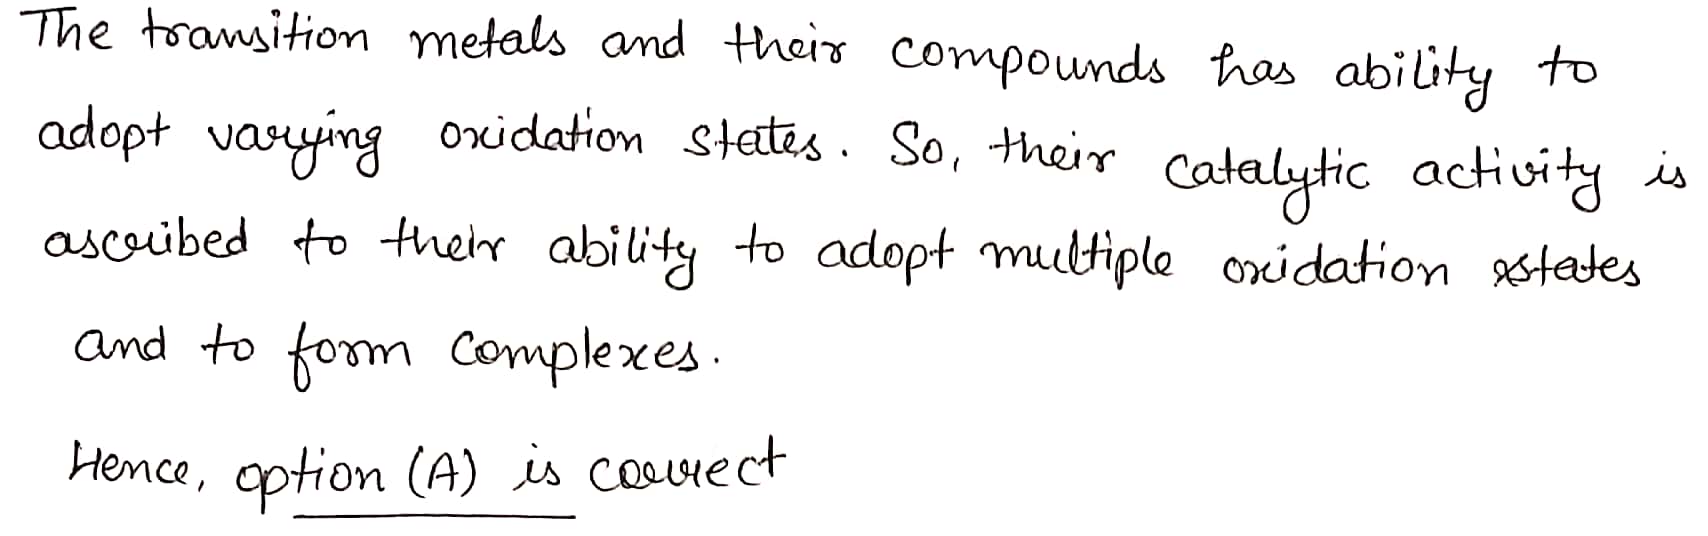 The transition metals and their compounds has ability to
adopt varying oxidation states. So, their catalytic activity is
ascribed to their ability to adopt multiple oxidation states
and to form complexes.
Hence, option (A) is correct